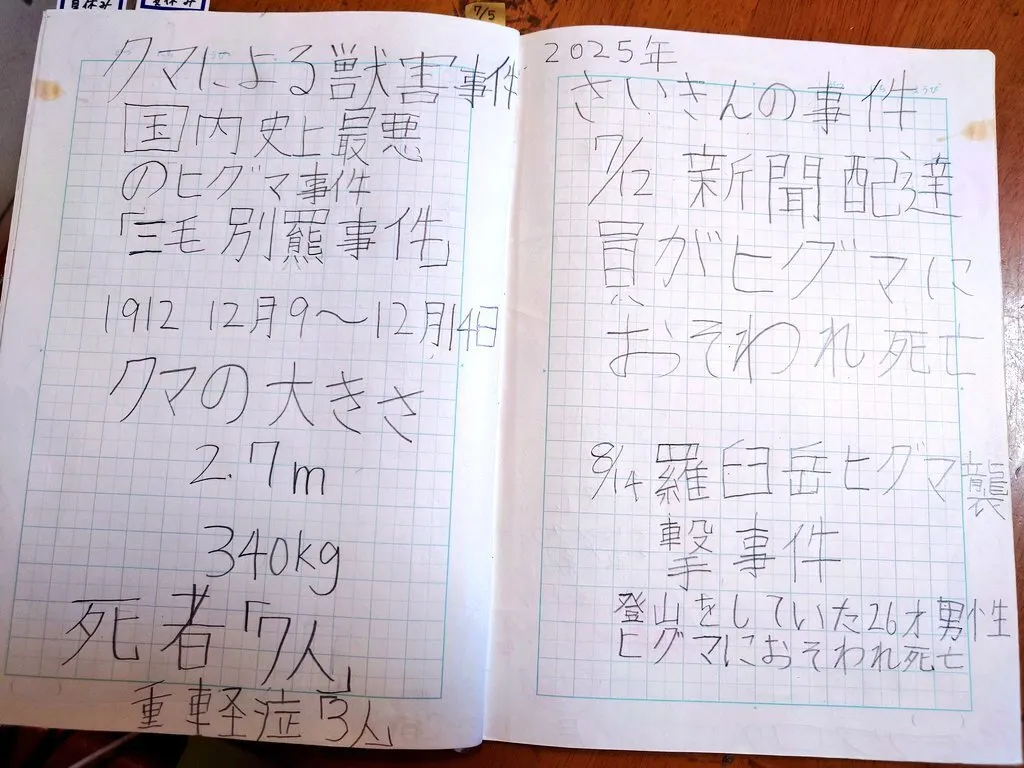 夏休み
夏休み
7/5
クマによる獣害事件
国内史上最悪
のヒグマ事件
「三毛別羆事件」
1912 12月9〜12月14日
クマの大きさ
2.7m
340kg
死者「7人」
重軽症「3人」
2025年
さいきんの事件
7/12 新聞配達
員がヒグマに
おそわれ死亡
8/14 羅臼岳ヒグマ襲
撃事件
登山をしていた26才男性
ヒグマにおそわれ死亡